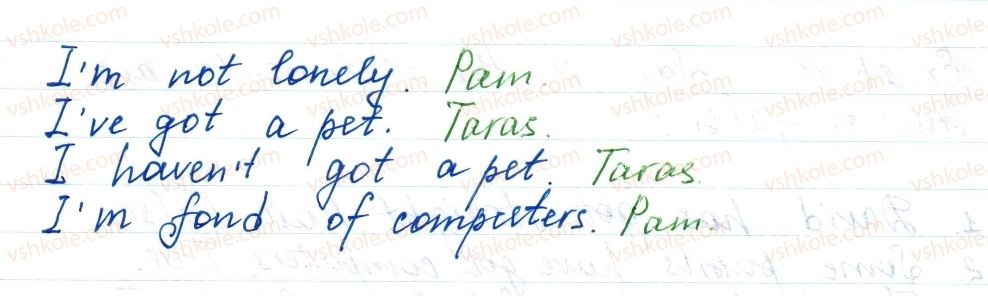 I'm not lonely. Pam.
I've got a pet. Taras.
I haven't got a pet. Taras.
I'm fond of computers. Pam.